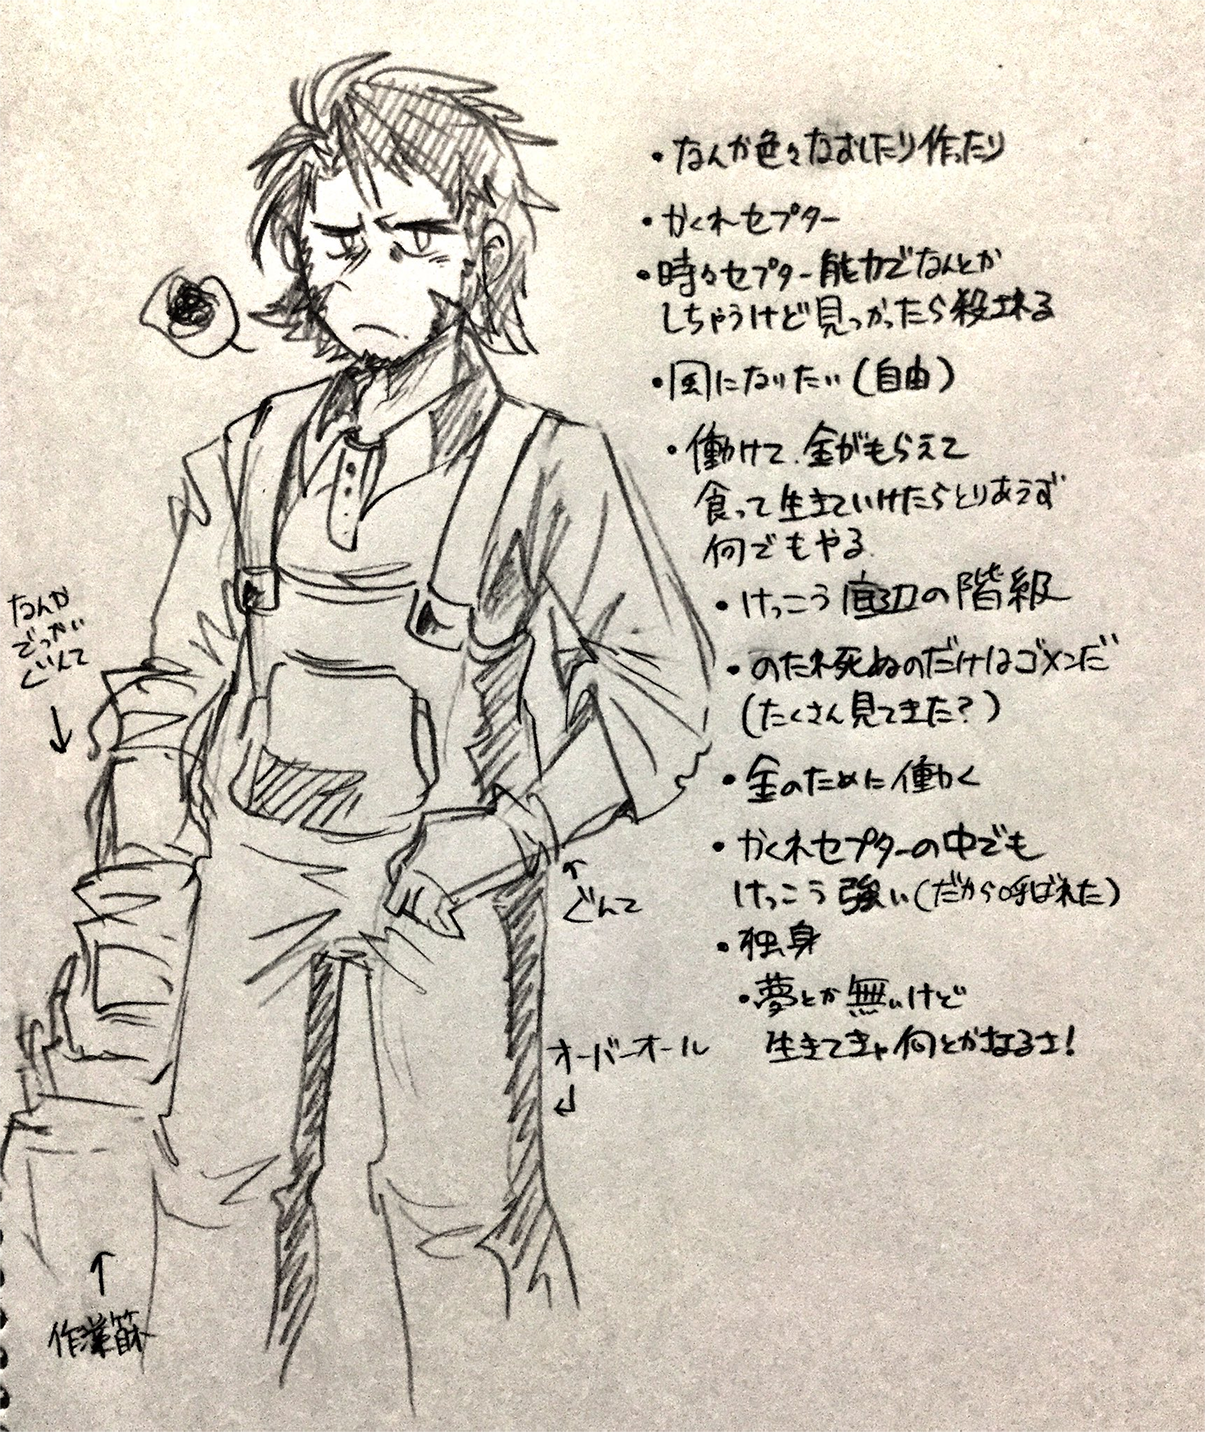 ・なんか色々なおしたり作ったり
・かくれセプター
・時々セプター能力でなんとか
しちゃうけど見つかったら殺される
・風になりたい(自由)
・働けて、金がもらえて
食って生きていけたらとりあえず
何でもやる
・けっこう底辺の階級
・のたれ死ぬのだけはゴメンだ
(たくさん見てきた?)
・金のために働く
・かくれセプターの中でも
けっこう強い(だから呼ばれた)
・独身
・夢とか無いけど
生きてきゃ何とかなるさ!
なんか
でっかい
ぐんて
ぐんて
オーバーオール